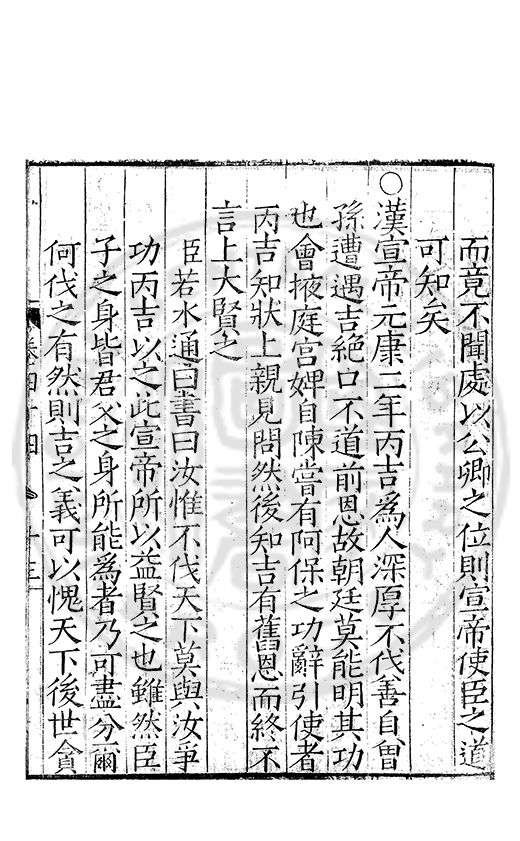 而竟不聞處以公卿之位則宣帝使臣之道
可知矣
○漢宣帝元康三年丙吉爲人深厚不伐善自曾
孫遭遇吉絕口不道前恩故朝廷莫能明其功
也會掖庭宮婢自陳嘗有阿保之功辭引使者
丙吉知狀上親見問然後知吉有舊恩而終不
言上大賢之
臣若水通曰書曰汝惟不伐天下莫與汝爭
功丙吉以之此宣帝所以益賢之也雖然臣
子之身皆君父之身所能爲者乃可盡分爾
何伐之有然則吉之義可以愧天下後世貪
卷四十四 十三